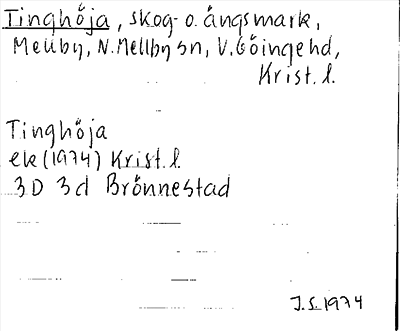 Tinghöja, skog- o. ängsmark,
Mellby, N. Mellby sn, V. Göinge hd,
Krist. l.
Tinghöja
ek (1974) Krist. l.
3D 3d Brönnestad
J.S. 1974